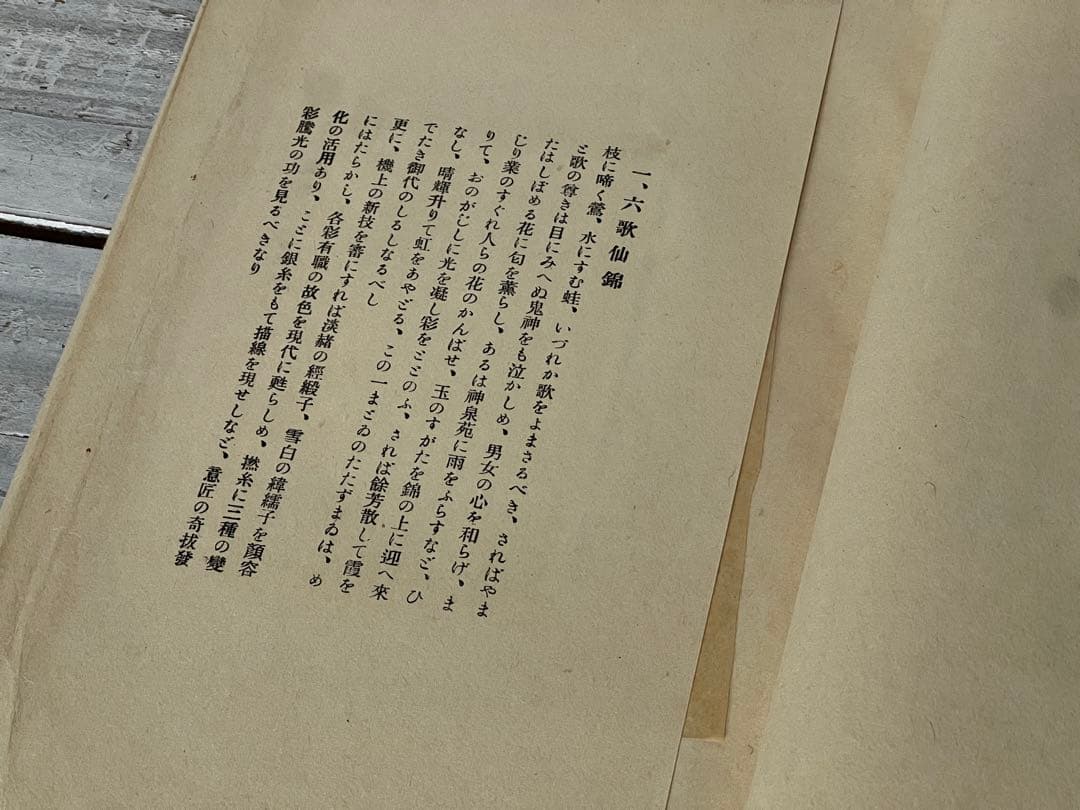 一、六歌仙錦
枝に啼く鶯、水にすむ蛙、いづれか歌をよまさるべき、さればやま
と歌の尊きは目にみへぬ鬼神をも泣かしめ、男女の心を和らげ、ま
たはしぼめる花に匂を薫らし、あるは神泉苑に雨をふらすなど、ひ
じり業のすぐれ人らの花のかんばせ、玉のすがたを錦の上に迎へ來
りて、おのがじしに光を凝し彩をととのふ、されば餘芳散して霞を
なし、晴輝升りて虹をあやどる、この一まとゐのたたずまゐは、め
でたき御代のしるしなるべし
更に、機上の新技を審にすれば淡緒の經緞子、雪白の緯繻子を顔容
にはたらかし、各彩有職の故色を現代に甦らしめ、撚糸に三種の變
化の活用あり、ここに銀糸をもて描線を現せしなど、意匠の奇抜發
彩騰光の功を見るべきなり